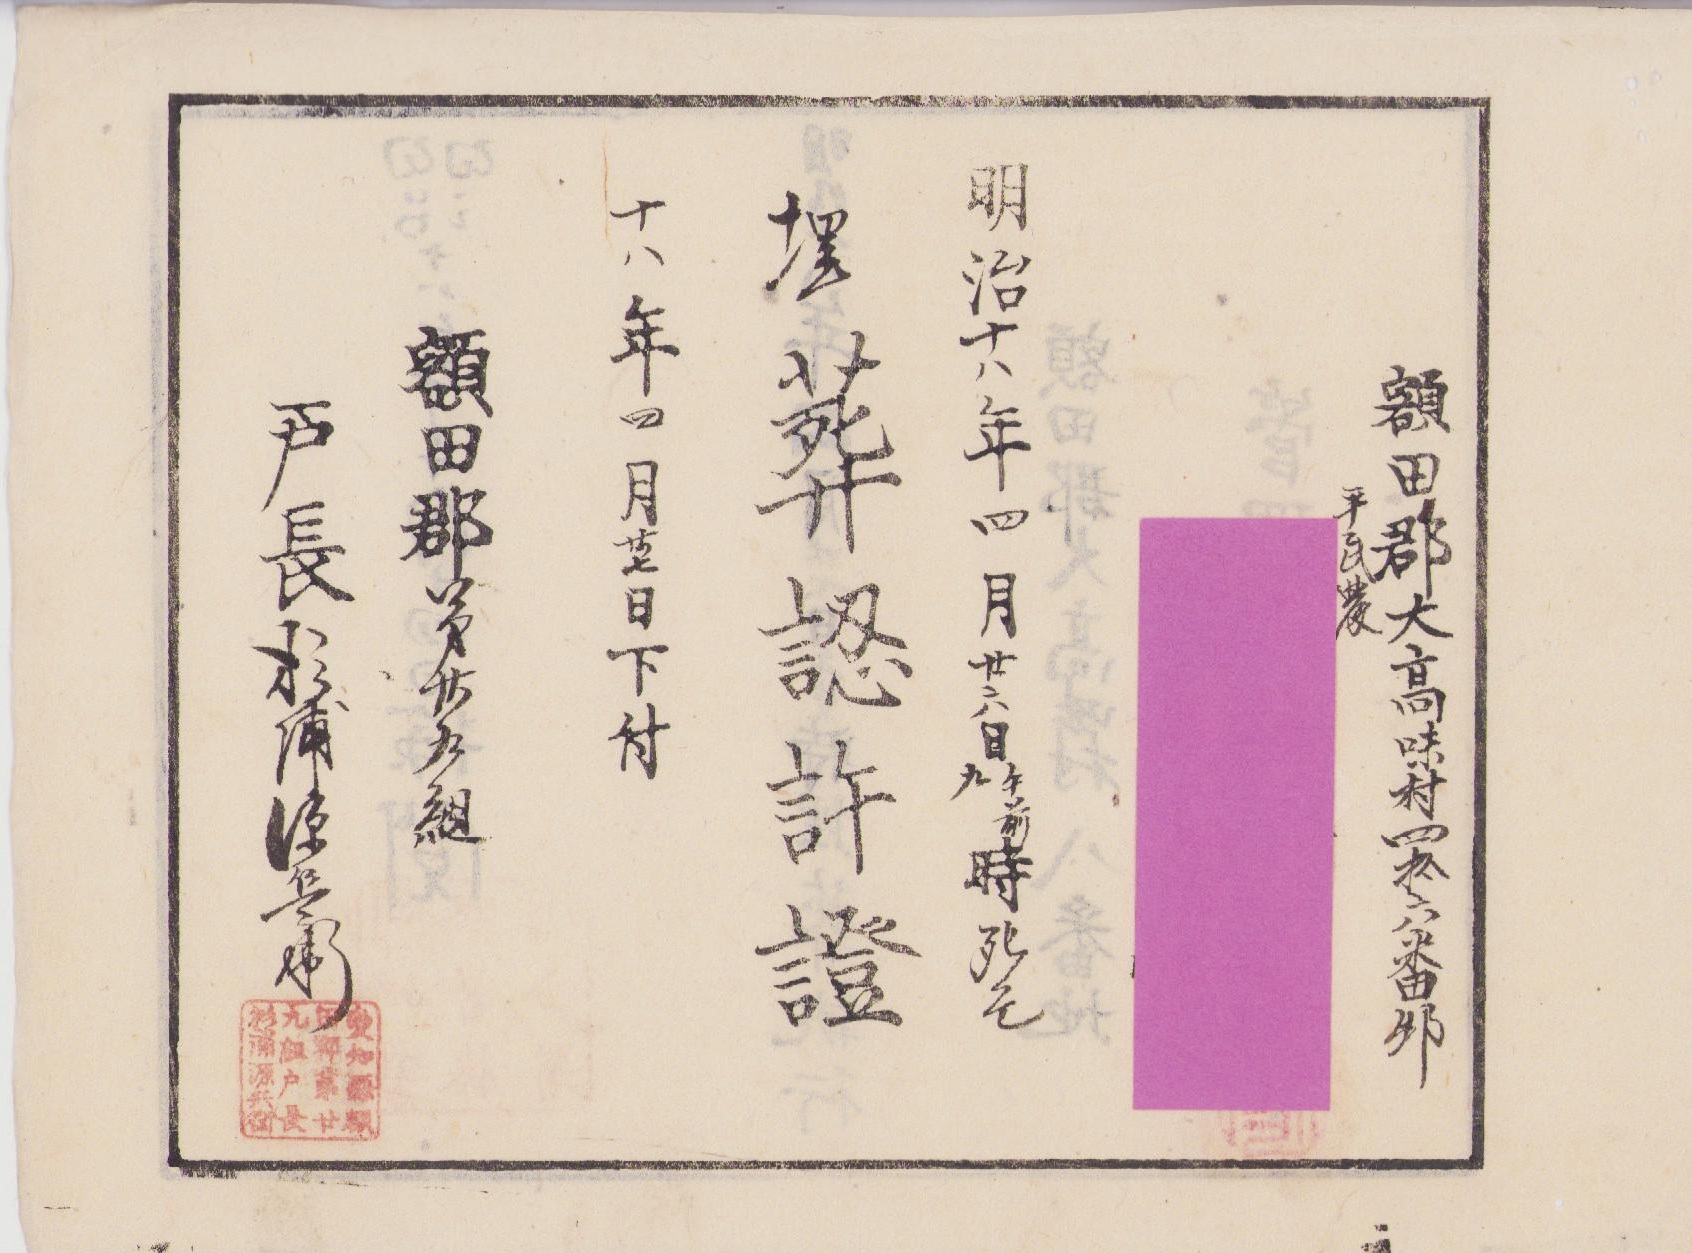 額田郡大高味村四拾六番邸
平民農
明治十八年四月廿六日午前九時死亡
埋葬認許證
十八年四月廿七日下付
額田郡第廿九組
戸長杉浦源兵衛
愛知縣額
田郡第廿
九組戸長
杉浦源兵衛